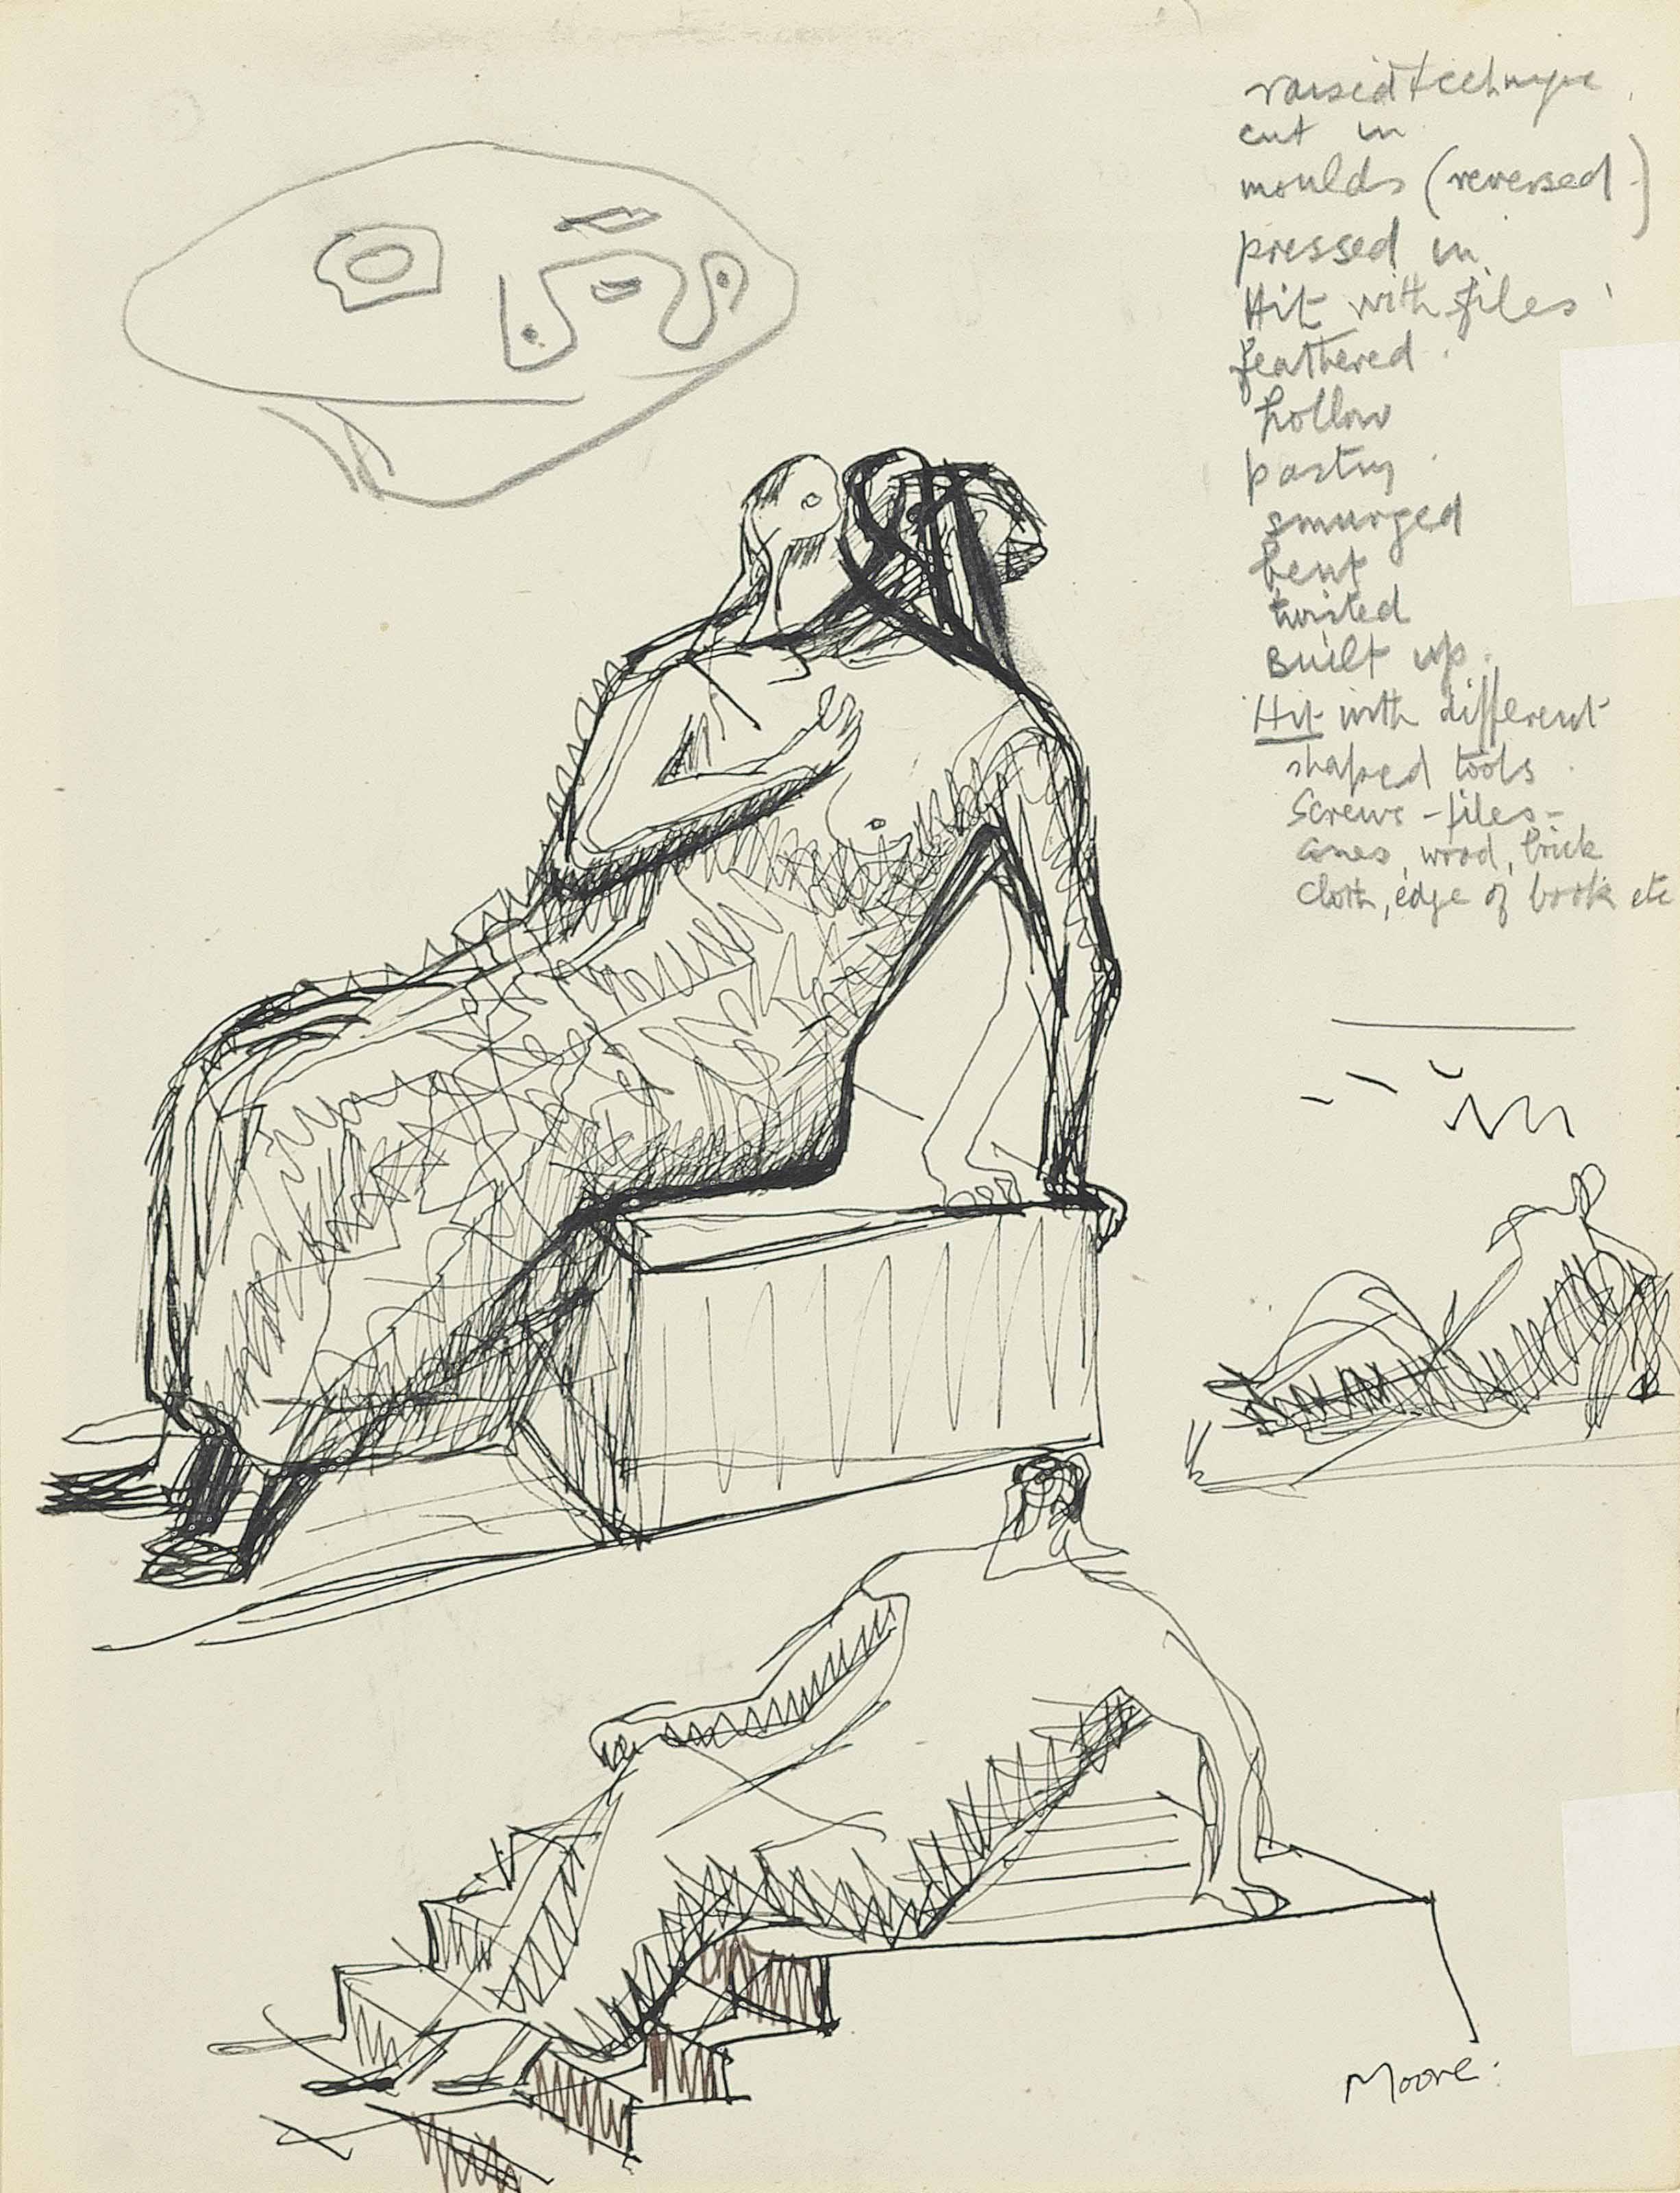 raised technique
cut in
moulds (reversed)
pressed in
Hit with files
feathered.
hollow
pastry
smurged
bent
twisted
Built up.
Hit with different
shaped tools.
Screws - files -
cones, wood, brick
cloth, edge of book etc
Moore.